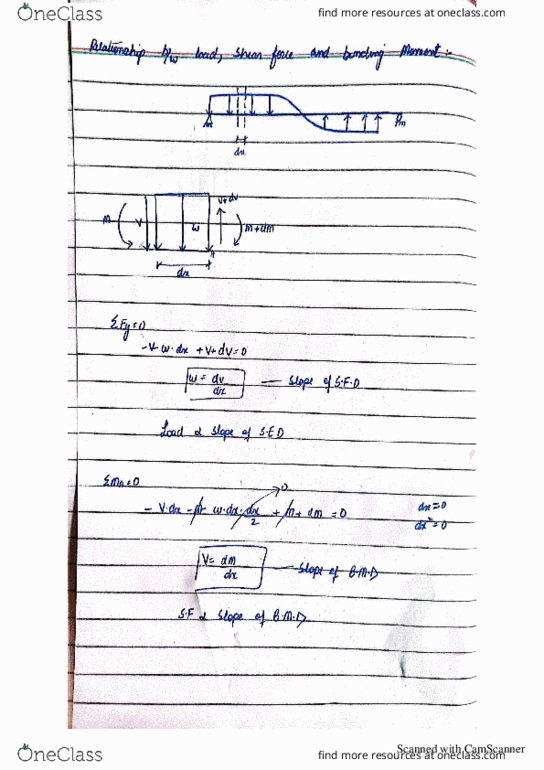 OneClass
find more resources at oneclass.com
Relationship b/w load, shear force and bending Moment :-
dx
M V w V+dV M+dm
dx
ΣFy=0
-V- w·dx + V+dV=0
w = dv/dx — slope of S.F.D
Load α slope of S.F.D
Σma=0
→0
- V·dx - M - w·dx·dx/2 + M + dm = 0
dx≈0
dx²=0
V = dm/dx — slope of B.M.D
S.F α slope of B.M.D
Scanned with CamScanner
OneClass
find more resources at oneclass.com